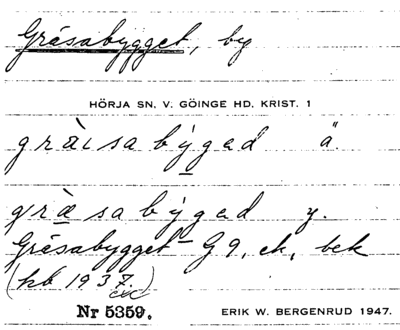 Gräsabygget, by
HÖRJA SN, V. GÖINGE HD, KRIST. 1
gràisabýgad ä.
græ̀sabýgad y.
Gräsabygget G9, ek, bek
(kb 1937. )
Nr 5359. ERIK W. BERGENRUD 1947.